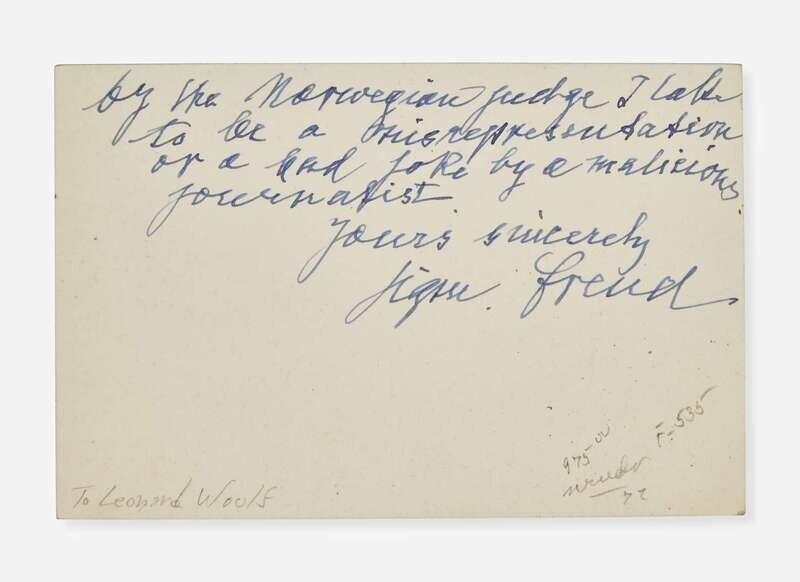 by the Norwegian judge I take
to be a misrepresentation
or a bad joke by a malicious
journalist
Yours sincerely
Sigm. Freud
975 00
F-535
72
To Leonard Woolf